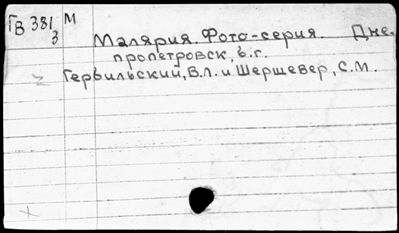 ГВ 381 М
3
Малярия. Фото-серия. Дне.
пропетровск, б.г.
Гервильский, В.Л. и Шершевер, С.М.